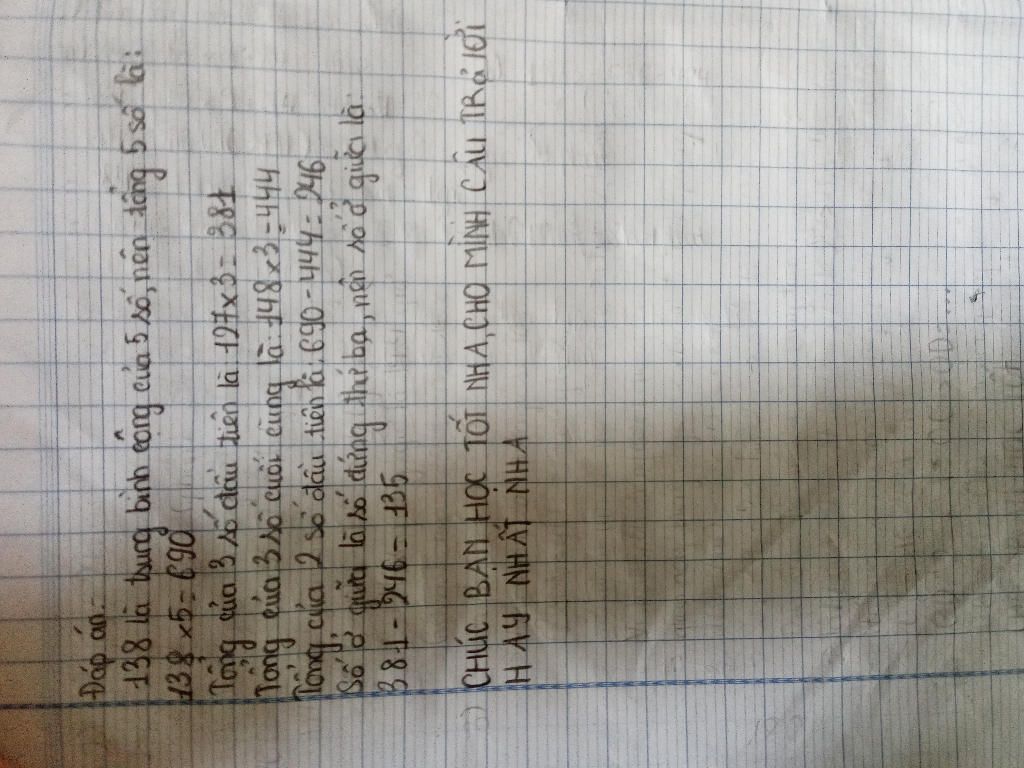 Đáp án:
138 là trung bình cộng của 5 số, nên tổng 5 số là:
138 x 5 = 690
Tổng của 3 số đầu tiên là 127 x 3 = 381
Tổng của 3 số cuối cùng là: 148 x 3 = 444
Tổng của 2 số đầu tiên là: 690 - 444 = 246
Số ở giữa là số đứng thứ ba, nên số ở giữa là:
381 - 246 = 135
CHÚC BẠN HỌC TỐT NHA, CHO MÌNH CÂU TRẢ LỜI
HAY NHẤT NHA